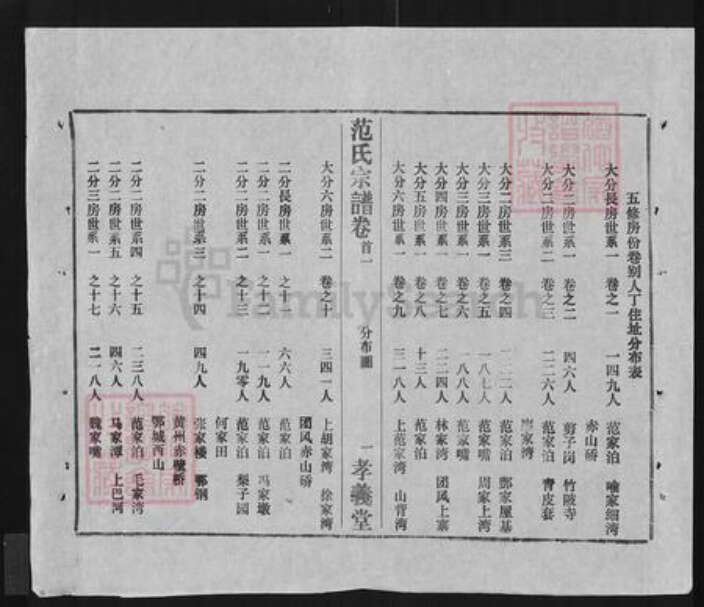 五修房份卷别人丁住址分布表
大分長房世系一 卷之一 一四九人 范家泊 喻家细湾
赤山硚
大分二房世系一 卷之二 四六人 剪子岗 竹陂寺
大分二房世系二 卷之三 二二六人 范家泊 青皮套
家湾
大分二房世系三 卷之四 二人 范家泊 鄧家屋基
大分三房世系一 卷之五 一八七人 范家嘴 周家上湾
大分三房世系一 卷之六 一八八人 范家嘴
大分四房世系一 卷之七 二二四人 林家湾 团风上寨
大分五房世系一 卷之八 十三人 范家泊
大分六房世系一 卷之九 三一八人 上范家湾 山背湾
范氏宗譜卷首一 分布圖 一 孝義堂
大分六房世系二 卷之十 三四一人 上胡家湾 徐家湾
团风赤山硚
二分長房世系一 之十一 六六人 范家泊
二分二房世系一 之十二 一一九人 范家泊 冯家墩
二分二房世系二 之十三 一九零人 范家泊 梨子园
何家田
二分二房世系三 之十四 四九人 张家楼 鄂钢
黄州赤壁桥
鄂城西山
二分二房世系四 之十五 二三八人 范家泊 毛家湾
二分二房世系五 之十六 四六人 马家潭 上巴河
二分三房世系一 之十七 二一八人 魏家嘴
FamilySearch